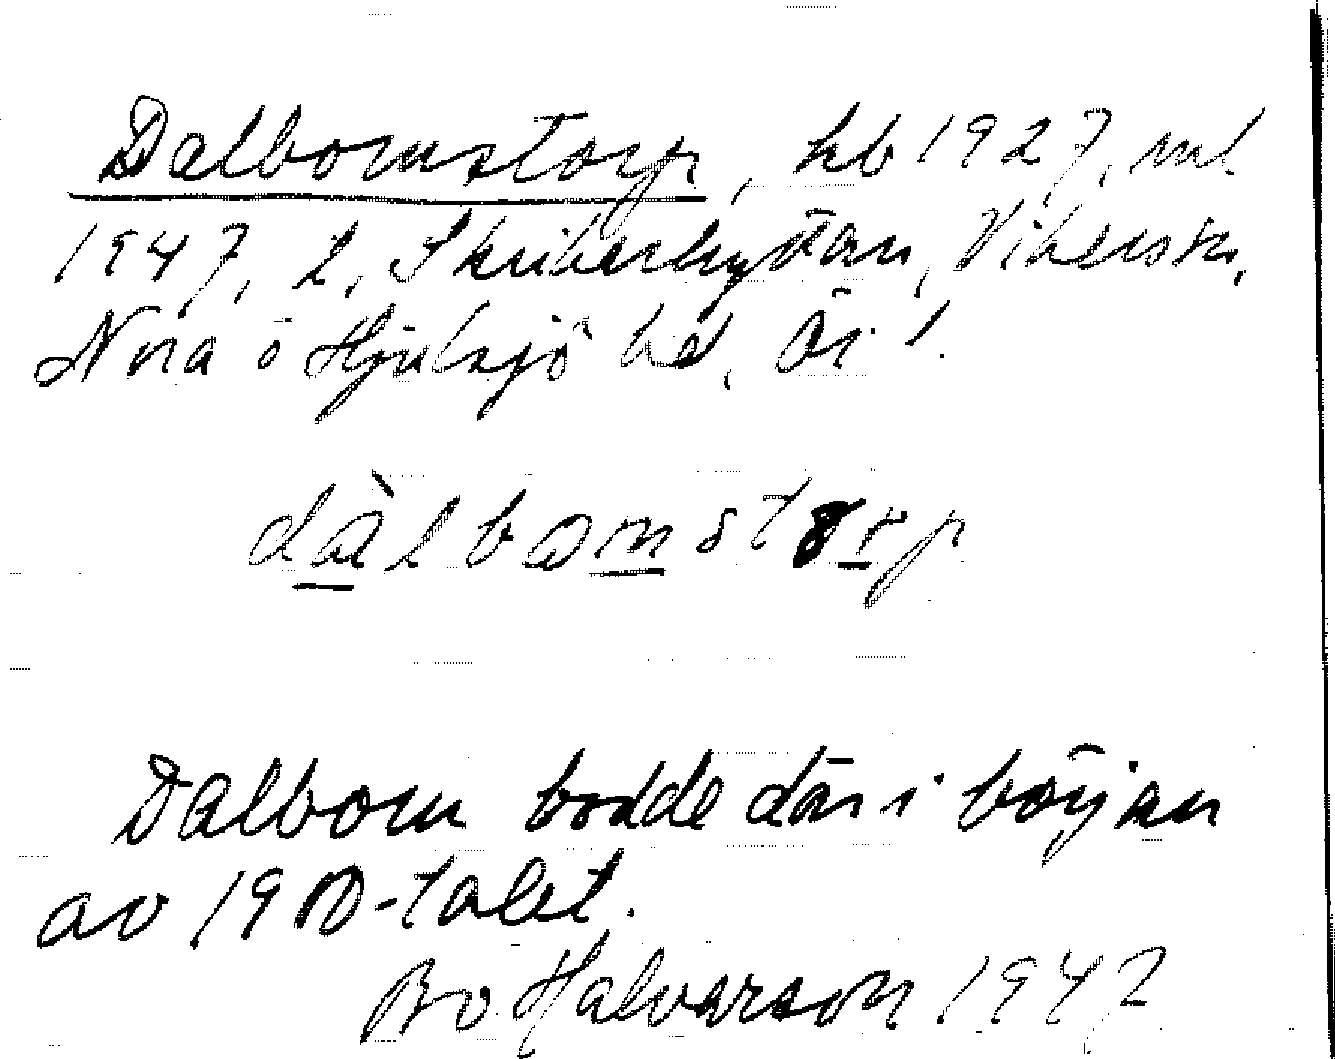 Dalbomstorp, hb 1927, ml
1947, l, Skrikarhyttan, Vikers sn,
Nora o Hjulsjö hd, Ör. l.
dàlbomstorp
Dalbom bodde där i början
av 1900-talet.
Bo Halvarson 1947